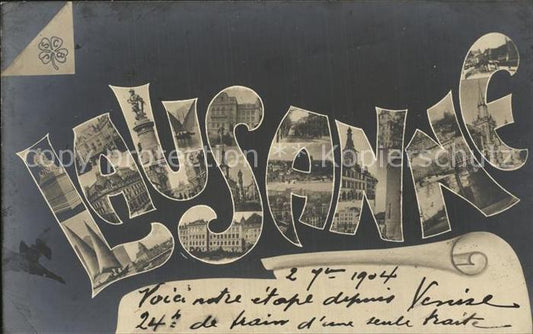 LAUSANNE
copy protection Kopierschutz
2 7bre 1904
Voici notre étape depuis Venise
24h de train d'une seule traite